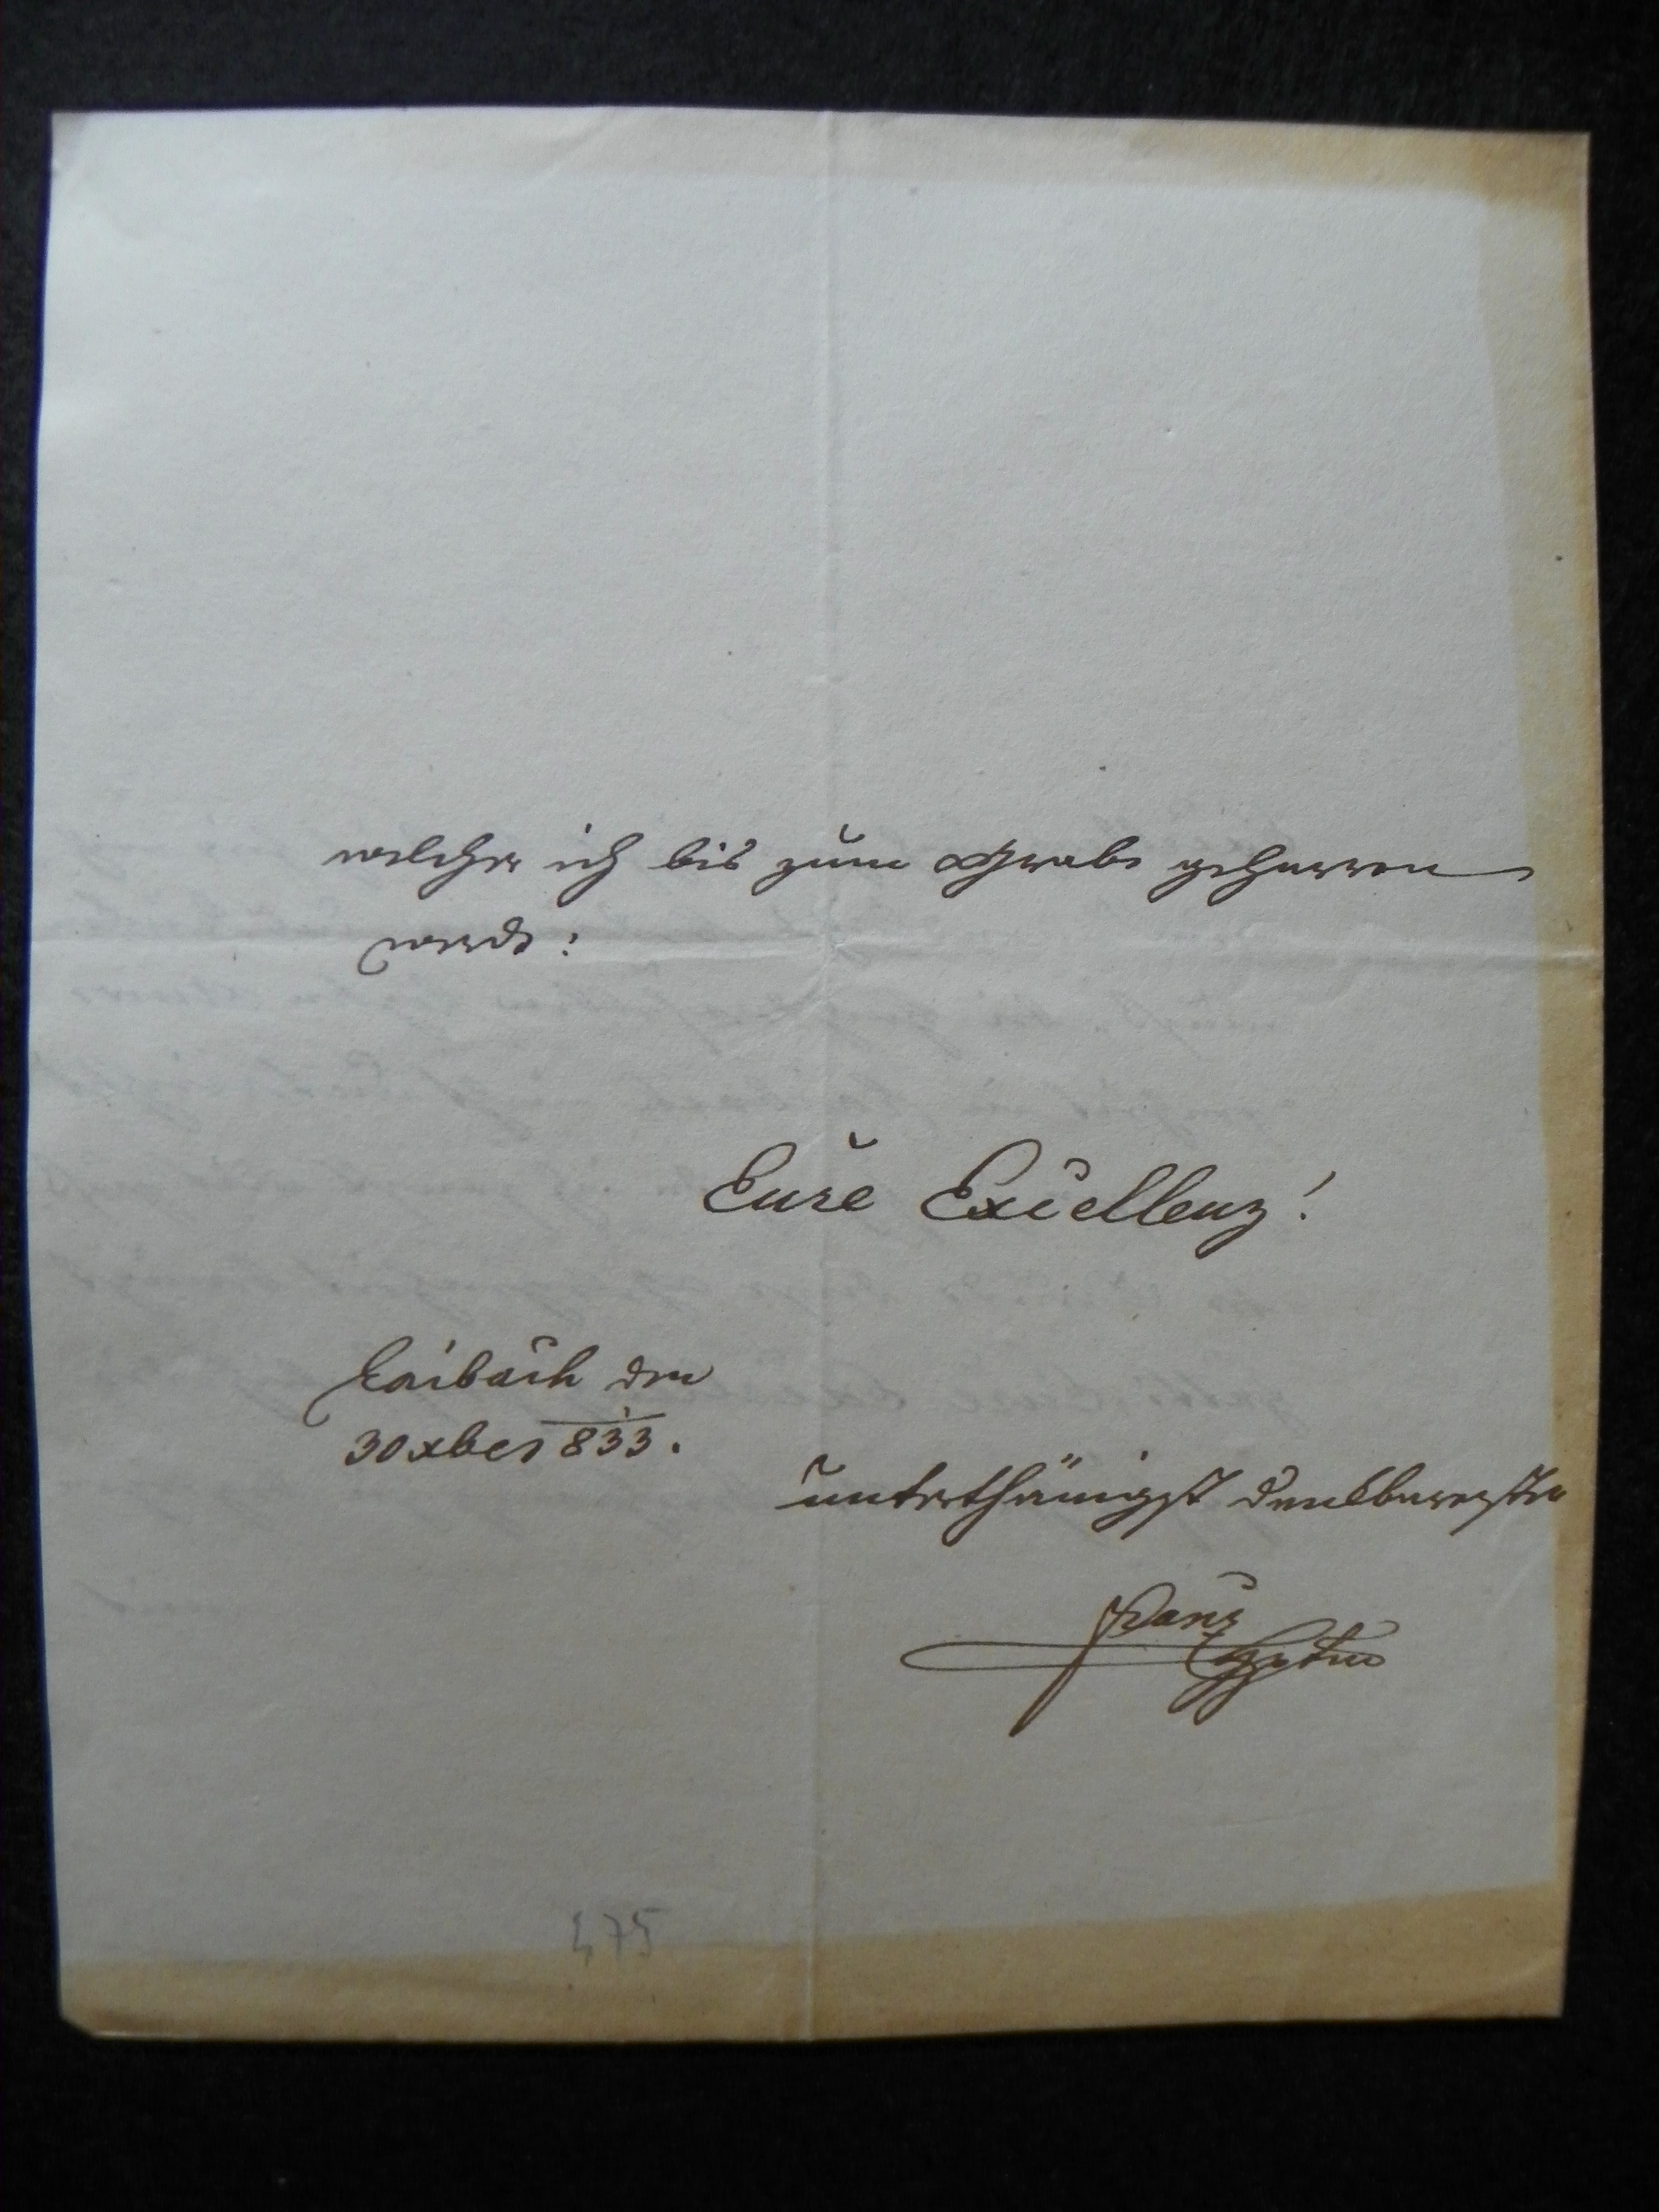 welcher ich bis zum Grabe geharren
werde:
Eure Excellenz!
Laibach den
30 xber 833.
unterthänigst dankbarester
Franz
475